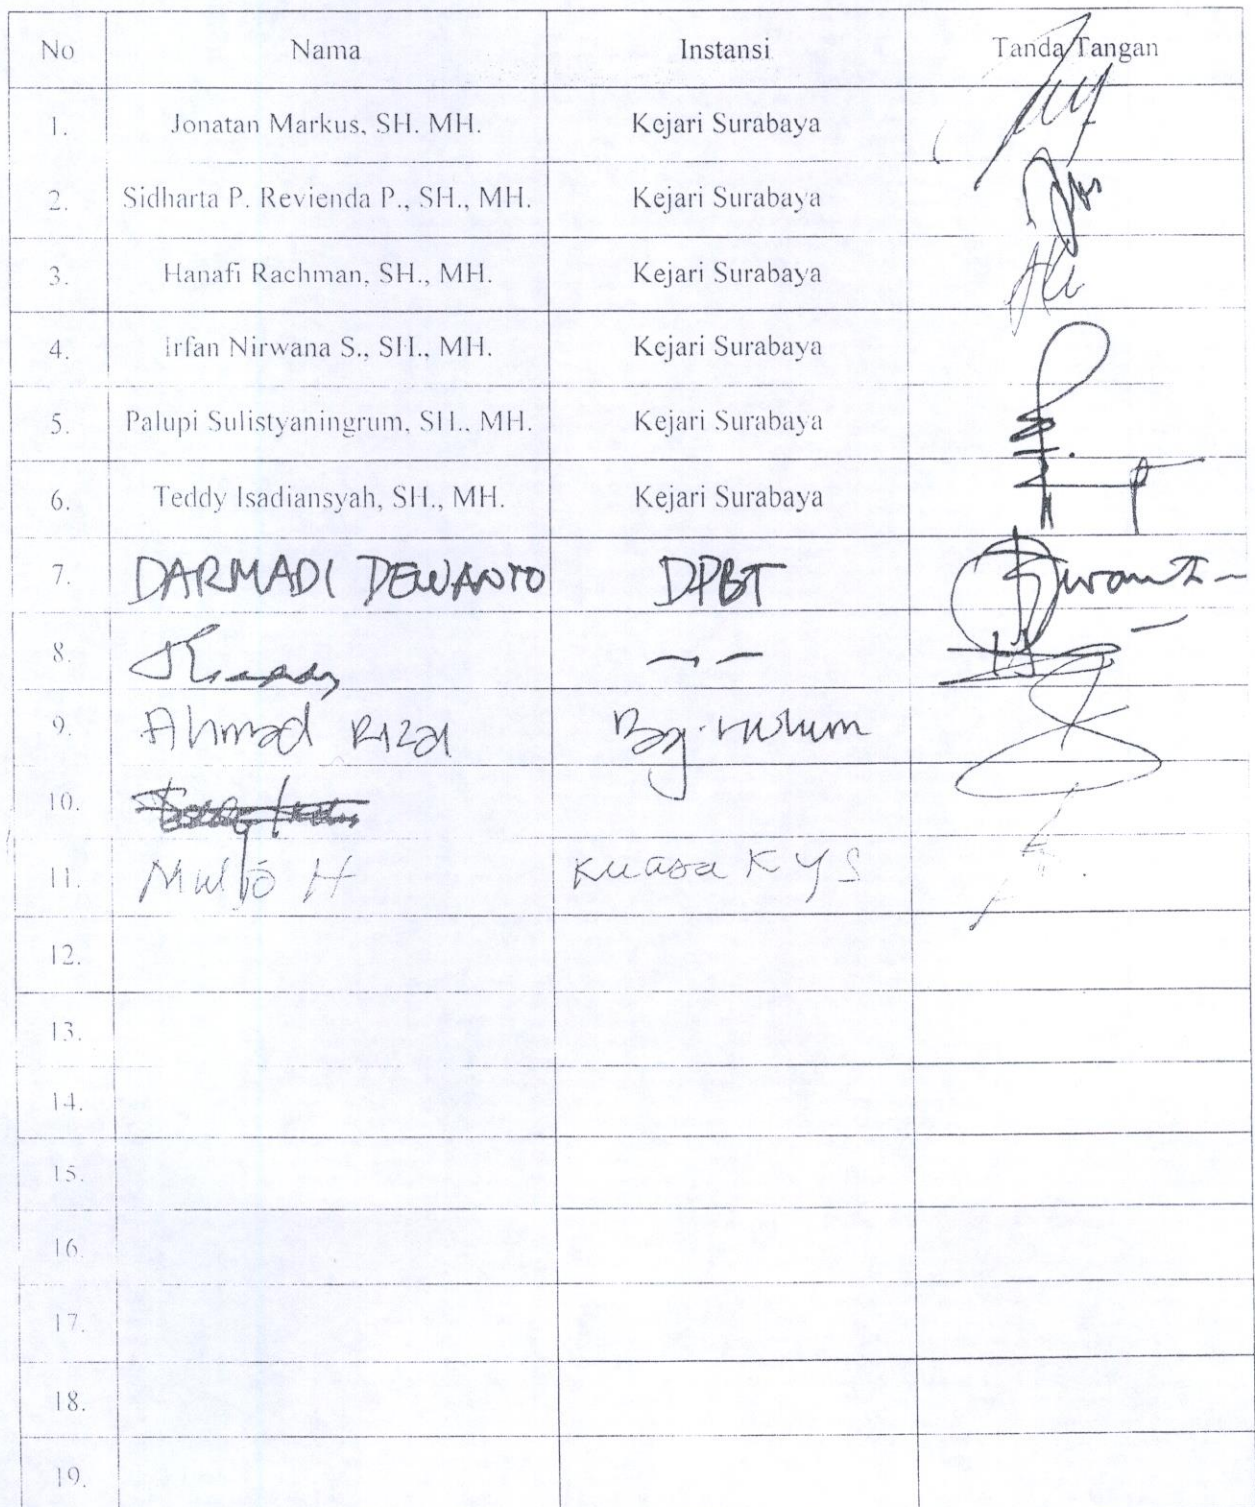 No Nama Instansi Tanda Tangan
1. Jonatan Markus, SH. MH. Kejari Surabaya
2. Sidharta P. Revienda P., SH., MH. Kejari Surabaya
3. Hanafi Rachman, SH., MH. Kejari Surabaya
4. Irfan Nirwana S., SH., MH. Kejari Surabaya
5. Palupi Sulistyaningrum, SH.. MH. Kejari Surabaya
6. Teddy Isadiansyah, SH., MH. Kejari Surabaya
7. DARMADI DEWANTO DPBT
8.
9. Ahmad Rizal Bg. Hukum
10.
11. Muljo H Kuasa KYS
12.
13.
14.
15.
16.
17.
18.
19.